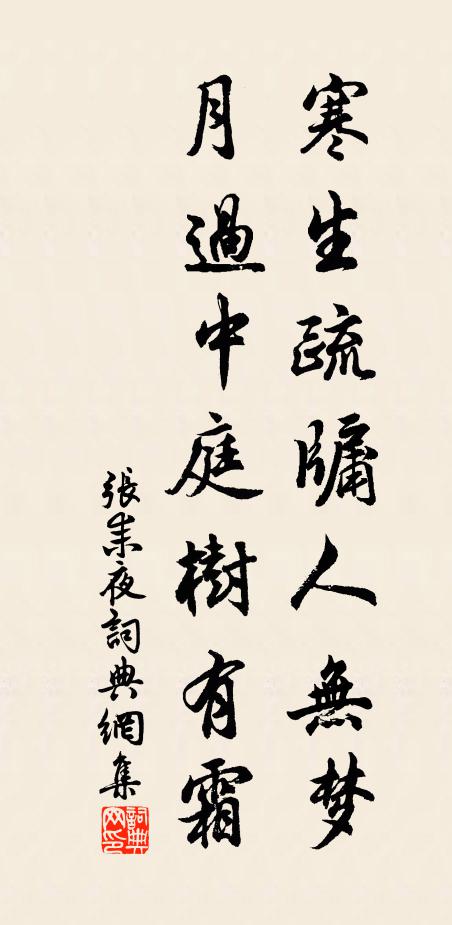 寒生疏牖人無梦
月過中庭樹有霜
張耒夜詞典網集
詞典网印